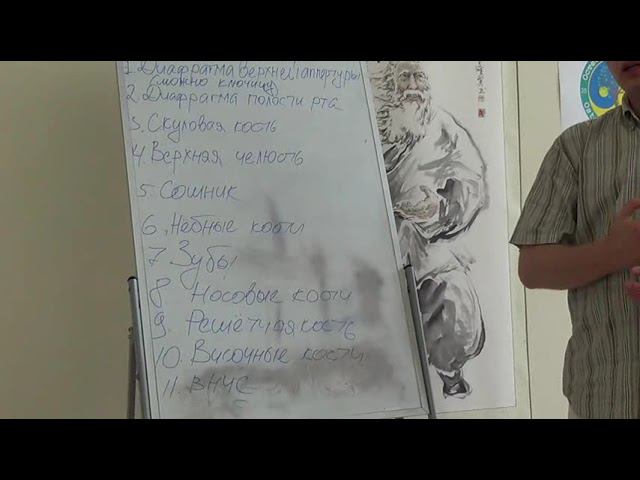 1. Диафрагма верхней аппертуры
(можно ключицу)
2. Диафрагма полости рта
3. Скуловая кость
4. Верхняя челюсть
5. Сошник
6. Нёбные кости
7. Зубы
8 Носовые кости
9. Решётчая кость
10. Височные кости
11. ВНЧС